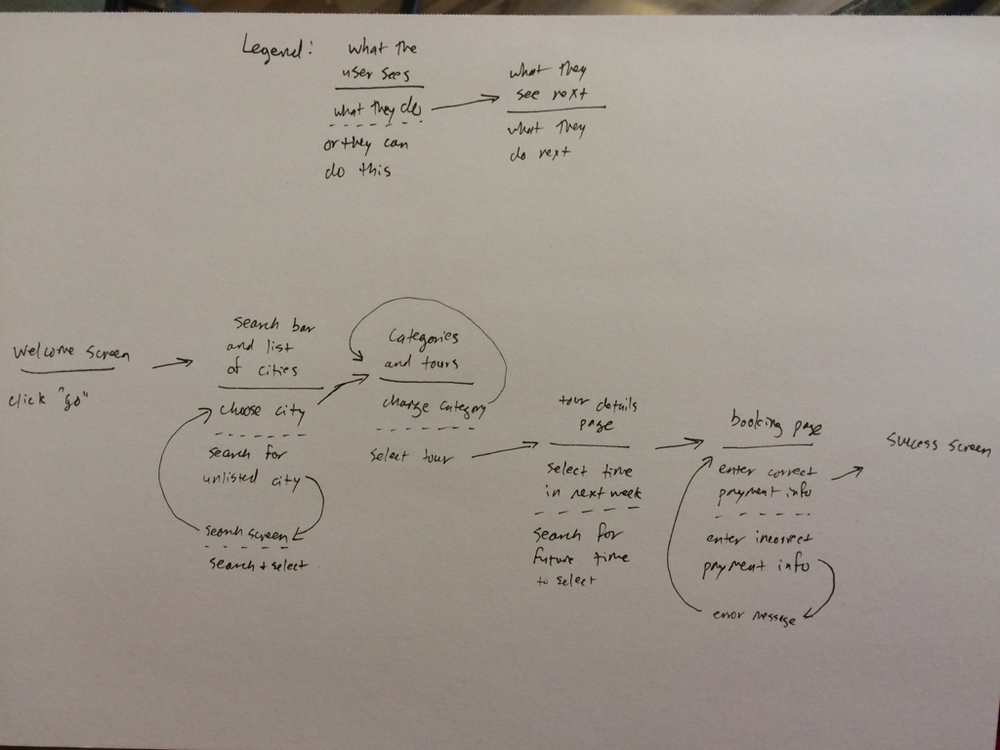 Legend:
what the
user sees
what they do
or they can
do this
what they
see next
what they
do next
Welcome screen
click "go"
search bar
and list
of cities
choose city
search for
unlisted city
search screen
search + select
Categories
and tours
change category
select tour
tour details
page
select time
in next week
search for
future time
to select
booking page
enter correct
payment info
enter incorrect
payment info
error message
success screen